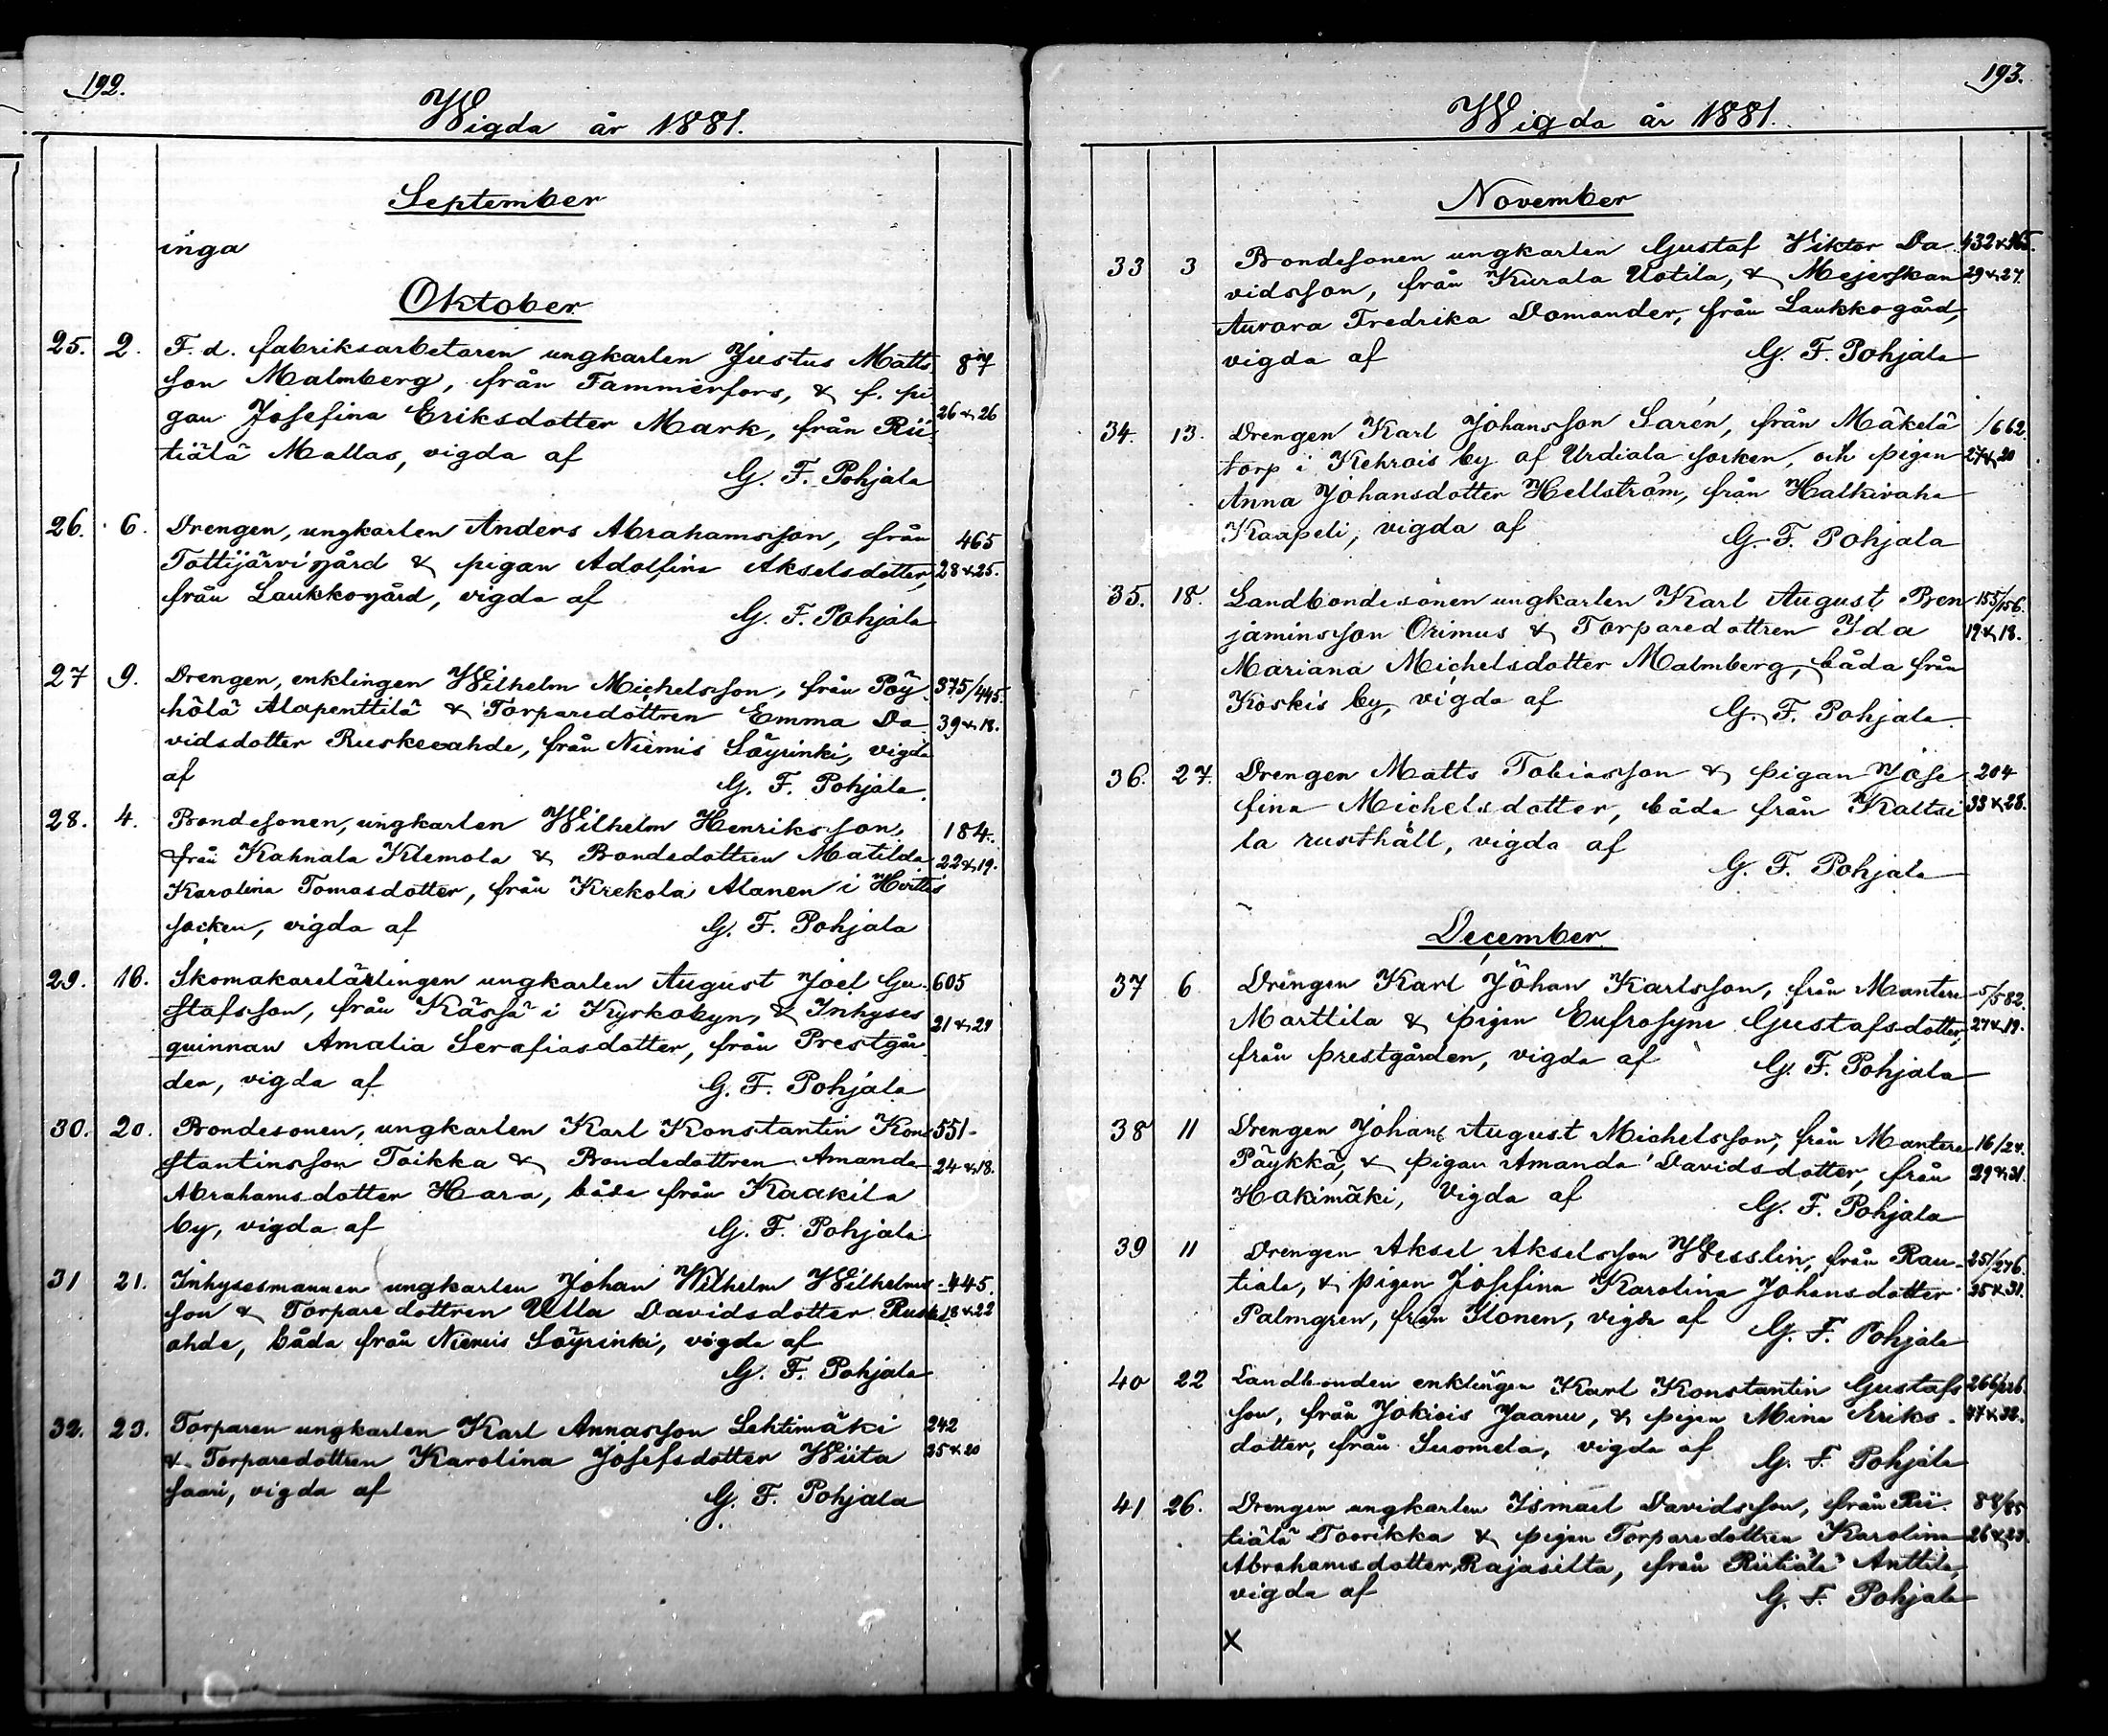 192.
Wigda år 1881.
September
inga
Oktober.
25. 2. F. d. fabriksarbetaren ungkarlen Justus Matts
son Malmberg, från Tammerfors, & f. pi- 87
gan Josefina Eriksdotter Mark, från Rii- 26 & 26
tiälä Mallas, vigda af
G. F. Pohjala
26. 6. Drengen, ungkarlen Anders Abrahamsson, från 465
Tottijärvi gård & pigan Adolfina Akselsdotter, 28 & 25.
från Laukko gård, vigda af
G. F. Pohjala
27 9. Drengen, enklingen Wilhelm Michelsson, från Pöy- 375/445.
hölä Alapenttilä & Torparedottren Emma Da- 39 & 18.
vidsdotter Ruskeeahde, från Niemis Söyrinki, vigda
af
G. F. Pohjala.
28. 4. Bondesonen, ungkarlen Wilhelm Henriksson, 184.
från Kahnala Klemola & Bondedottren Matilda 22 & 19.
Karolina Tomasdotter, från Krekola Alanen i Hvittis
socken, vigda af
G. F. Pohjala
29. 16. Skomakarelärlingen ungkarlen August Joel Gu- 605
stafsson, från Kässä i Kyrkobyn, & Inhyses 21 & 29
quinnan Amalia Serafiasdotter, från Prestgår
den, vigda af
G. F. Pohjala
30. 20. Bondesonen, ungkarlen Karl Konstantin Kon 551-
stantinsson Toikka & Bondedottren Amanda 24 & 18.
Abrahamsdotter Hara, båda från Kaakila
by, vigda af
G. F. Pohjala
31 21. Inhysesmannen ungkarlen Johan Wilhelm Wilhelms- 445.
son & Torparedottren Ulla Davidsdotter Ruskee 18 & 22
ahde, båda från Niemis Söyrinki, vigda af
G. F. Pohjala
32. 23. Torparen ungkarlen Karl Annasson Lehtimäki 242
& Torparedottren Karolina Josefsdotter Wiita 25 & 20
saari, vigda af
G. F. Pohjala
193.
Wigda år 1881.
November
33 3 Bondesonen ungkarlen Gustaf Viktor Da
vidsson, från Kurala Uotila, & Mejerskan 29 & 27.
Aurora Fredrika Domander, från Laukko gård,
vigda af
G. F. Pohjala
34. 13. Drengen Karl Johansson Sarén, från Mäkelä /662.
torp i Kehrois by af Urdiala socken, och pigan 27 & 20
Anna Johansdotter Hellström, från Halkivaha
Kaapeli, vigda af
G. F. Pohjala
35. 18. Landbondesonen ungkarlen Karl August Ben 155/156.
jaminsson Orimus & Torparedottren Ida 19 & 18.
Mariana Michelsdotter Malmberg, båda från
Koskis by, vigda af
G. F. Pohjala
36. 27. Drengen Matts Tobiasson & pigan Jose 204
fina Michelsdotter, båda från Kaltsi 33 & 28.
la rusthåll, vigda af
G. F. Pohjala
December.
37 6 Drengen Karl Johan Karlsson, från Mantere 5/582.
Marttila & pigan Eufrosyne Gustafsdotter, 27 & 19.
från prestgården, vigda af
G. F. Pohjala
38 11 Drengen Johan August Michelsson, från Mantere 16/24.
Päykkä, & pigan Amanda Davidsdotter, från 29 & 31.
Hakimäki, Vigda af
G. F. Pohjala
39 11 Drengen Aksel Akselsson Wesslin, från Rau- 251/276.
tiala, & pigan Josefina Karolina Johansdotter 25 & 31.
Palmgren, från Ilonen, vigda af
G. F. Pohjala
40 22 Landbonden enklingen Karl Konstantin Gustafs
son, från Jokiois Jaanu, & pigan Mina Eriks- 47 & 32.
dotter, från Suomela, vigda af
G. F. Pohjala
41 26. Drengen ungkarlen Ismael Davidsson, från Rii- 88/85
tiälä Toorikka & pigan Torparedottren Karolina 26 & 23.
Abrahamsdotter Rajasilta, från Riitiälä Anttila,
vigda af
G. F. Pohjala
X